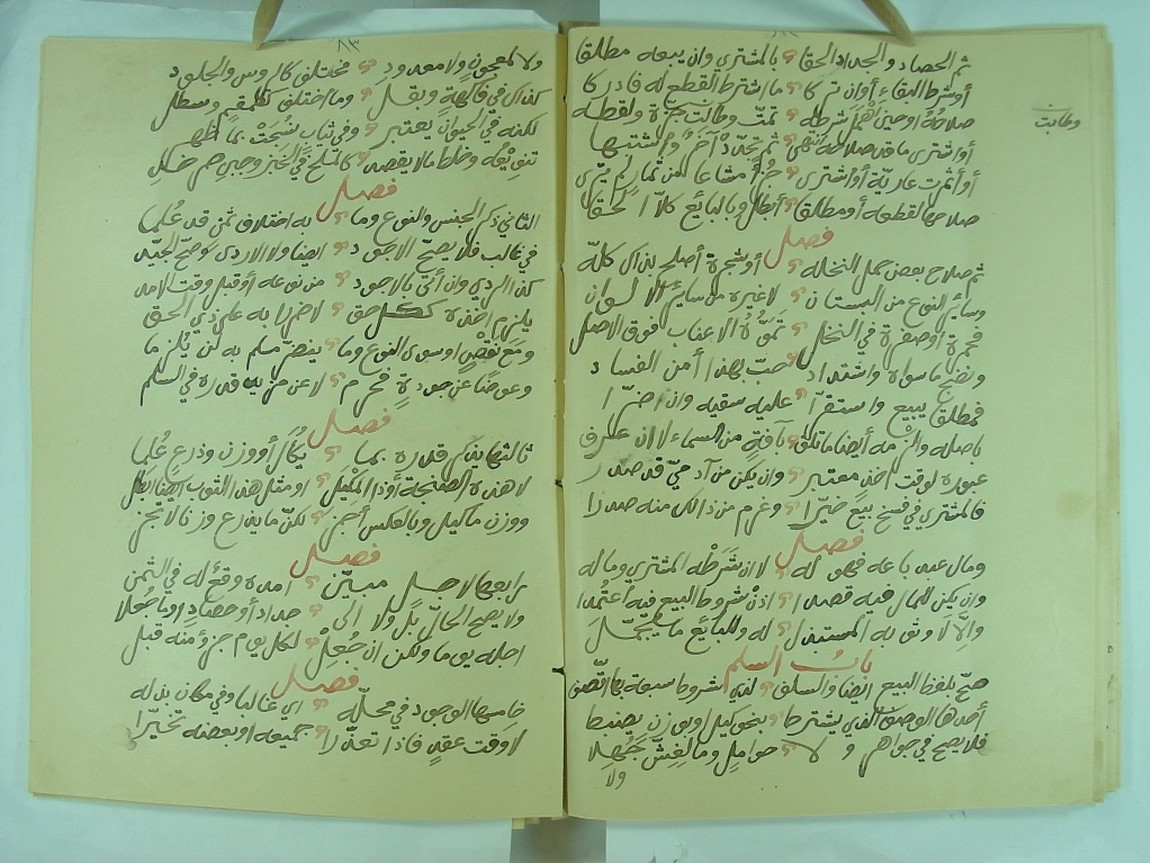 ثم الحصاد والجداد الحقا ؟ بالمشتري وان يبعه مطلقا
أو شرط البقاء أو ان تركا ؟ ما اشترط القطع له فادركا
صلاحه او حين أهمل شرطه ؟ تمت وطالت جزة ولقطه
وطالت
أو اشترى ما قد صلاحه انتهى ؟ ثم تجدد آخر واشتبها
أو أثمرت عارية أو اشترى ؟ جزأ مشاعا من ثمار لم يرى
صلاحها لقطعه أو مطلقا ؟ أبطل وبالبائع كلا الحقا
فصل
ثم صلاح بعض حمل النخله ؟ أو شجرة أصلح بذاك كله
وسائر النوع من البستان ؟ لا غيره من سائر الالوان
فحمرة أو صفرة في النخل ؟ تموه الاعناب فوق الاصل
ونضج ما سواه واشتداد ؟ حب بهذا أمن الفساد
فمطلقا يبيع واستقرا ؟ عليه سقيه وان اضرا
باصله والزمه أيضا ما تلف ؟ بآفة من السماء لا ان عرف
عبوره لوقت اخذ معتبر ؟ وان يكن من آدمي قد صدر
فالمشتري في فسخ بيع خيرا ؟ وغرم من ذالك منه صدرا
فصل
ومال عبد باعه فهو له ؟ لا ان شرطه المشتري وماله
وان يكن للمال فيه قصدا ؟ اذن شروط البيع فيه اعتمدا
والا لا وثوبه المستبذل ؟ له وللبائع ما يجمل
باب السلم
صح بلفظ البيع ايضا والسلف ؟ لذي شروط سبعة بها اتصف
أحدها الوصف الذي يشترط ؟ وبنحو كيل او بوزن يضبط
فلا يصح في جواهر ولا ؟ حوامل وما لغش جهلا
ولا
٨٣
ولا لمعجون ولا معدود ؟ مختلف كالروس والجلود
كذاك في فاكهة وبقل ؟ وما اختلف كقمقم وسطل
لكنه في الحيوان يعتبر ؟ وفي ثياب نسجت بما ظهر
تنويعه وخلط ما لا يقصد ؟ كالملح في الخبز وجبن خل
فصل
الثاني ذكر الجنس والنوع وما ؟ به اختلاف ثمن قد علما
في غالب فلا يصح الاجود ؟ ايضا ولا الاردى وصح الجيد
كذا الردي وان أتى بالاجود ؟ من نوعه أو قبل وقت الامد
يلزم اخذه ككل حق ؟ لا ضررا به على ذي الحق
ومع نقص او سوى النوع وما ؟ يضر مسلم به لن يلزما
وعوضا عن جودة فحرم ؟ لا عن مزيد قدره في السلم
فصل
ثالثها بذكر قدره بما ؟ يكال أو وزن وذرع علما
لا هذه الصنجة أو ذا المكيل ؟ او مثل هذا الثوب ايضا ابطل
ووزن ما كيل وبالعكس أجز ؟ لكن ما يذرع وزنا لا تجز
فصل
رابعها لاجل مبين ؟ امده وقع له في الثمن
ولا يصح الحال بل ولا الى ؟ جداد أو حصاد او ما جهلا
اجله يوما ولكن ان جعل ؟ لكل يوم جزؤ منه قبل
فصل
خامسها الوجود في محله ؟ اي غالبا وفي مكان بذله
لا وقت عقد فاذا تعذرا ؟ جميعه او بعضه تخيرا